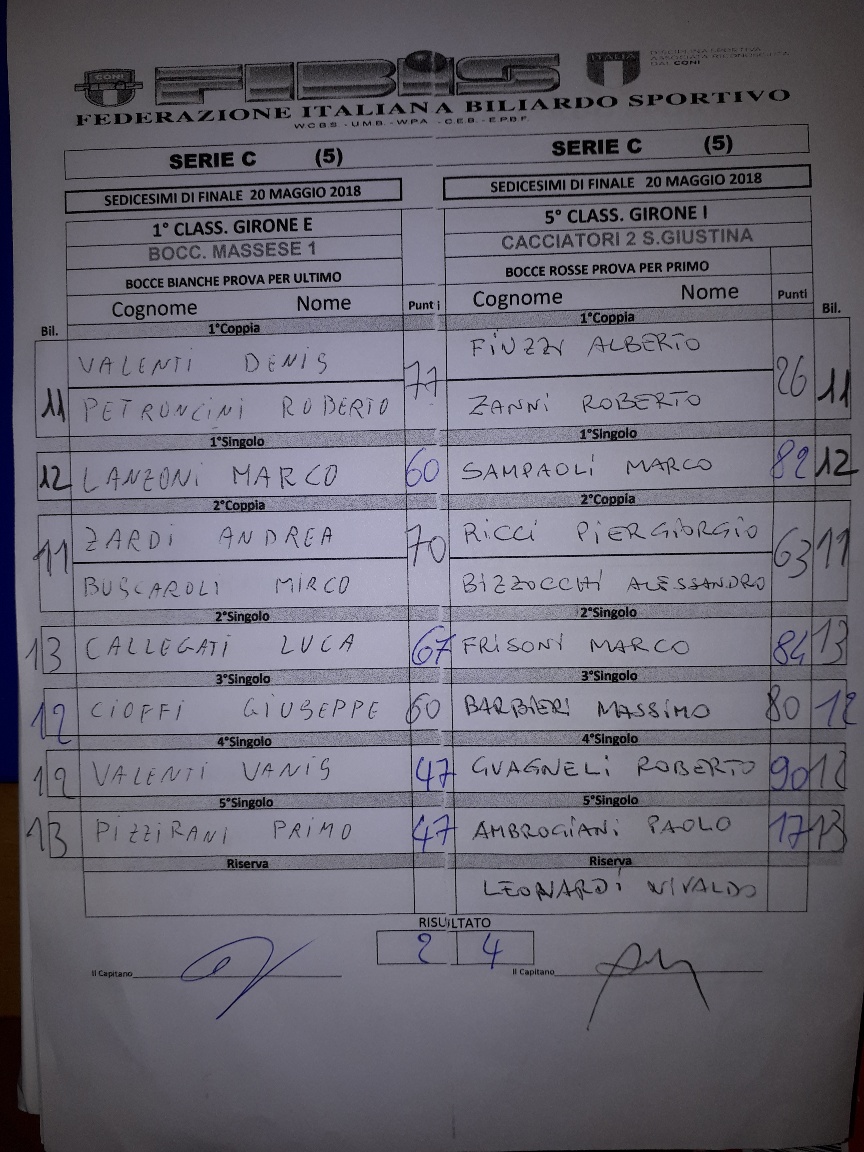 CONI FIBiS ITALIA DISCIPLINA SPORTIVA
ASSOCIATA RICONOSCIUTA
DAL CONI
FEDERAZIONE ITALIANA BILIARDO SPORTIVO
W.C.B.S. - U.M.B. - W.P.A. - C.E.B. - E.P.B.F.
SERIE C (5) SERIE C (5)
SEDICESIMI DI FINALE 20 MAGGIO 2018 SEDICESIMI DI FINALE 20 MAGGIO 2018
1° CLASS. GIRONE E 5° CLASS. GIRONE I
BOCC. MASSESE 1 CACCIATORI 2 S.GIUSTINA
BOCCE BIANCHE PROVA PER ULTIMO BOCCE ROSSE PROVA PER PRIMO
Bil. Cognome Nome Punti Cognome Nome Punti Bil.
1°Coppia 1°Coppia
VALENTI DENIS FIUZZI ALBERTO
11 77 26 11
PETRONCINI ROBERTO ZANNI ROBERTO
1°Singolo 1°Singolo
12 LANZONI MARCO 60 SAMPAOLI MARCO 82 12
2°Coppia 2°Coppia
ZARDI ANDREA RICCI PIERGIORGIO
11 70 63 11
BUSCAROLI MIRCO BIZZOCCHI ALESSANDRO
2°Singolo 2°Singolo
13 CALLEGATI LUCA 67 FRISONI MARCO 84 13
3°Singolo 3°Singolo
12 CIOFFI GIUSEPPE 60 BARBIERI MASSIMO 80 12
4°Singolo 4°Singolo
12 VALENTI VANIS 47 GUAGNELI ROBERTO 90 12
5°Singolo 5°Singolo
13 PIZZIRANI PRIMO 47 AMBROGIANI PAOLO 17 13
Riserva Riserva
LEONARDI NIVALDO
RISULTATO
2 4
Il Capitano Il Capitano